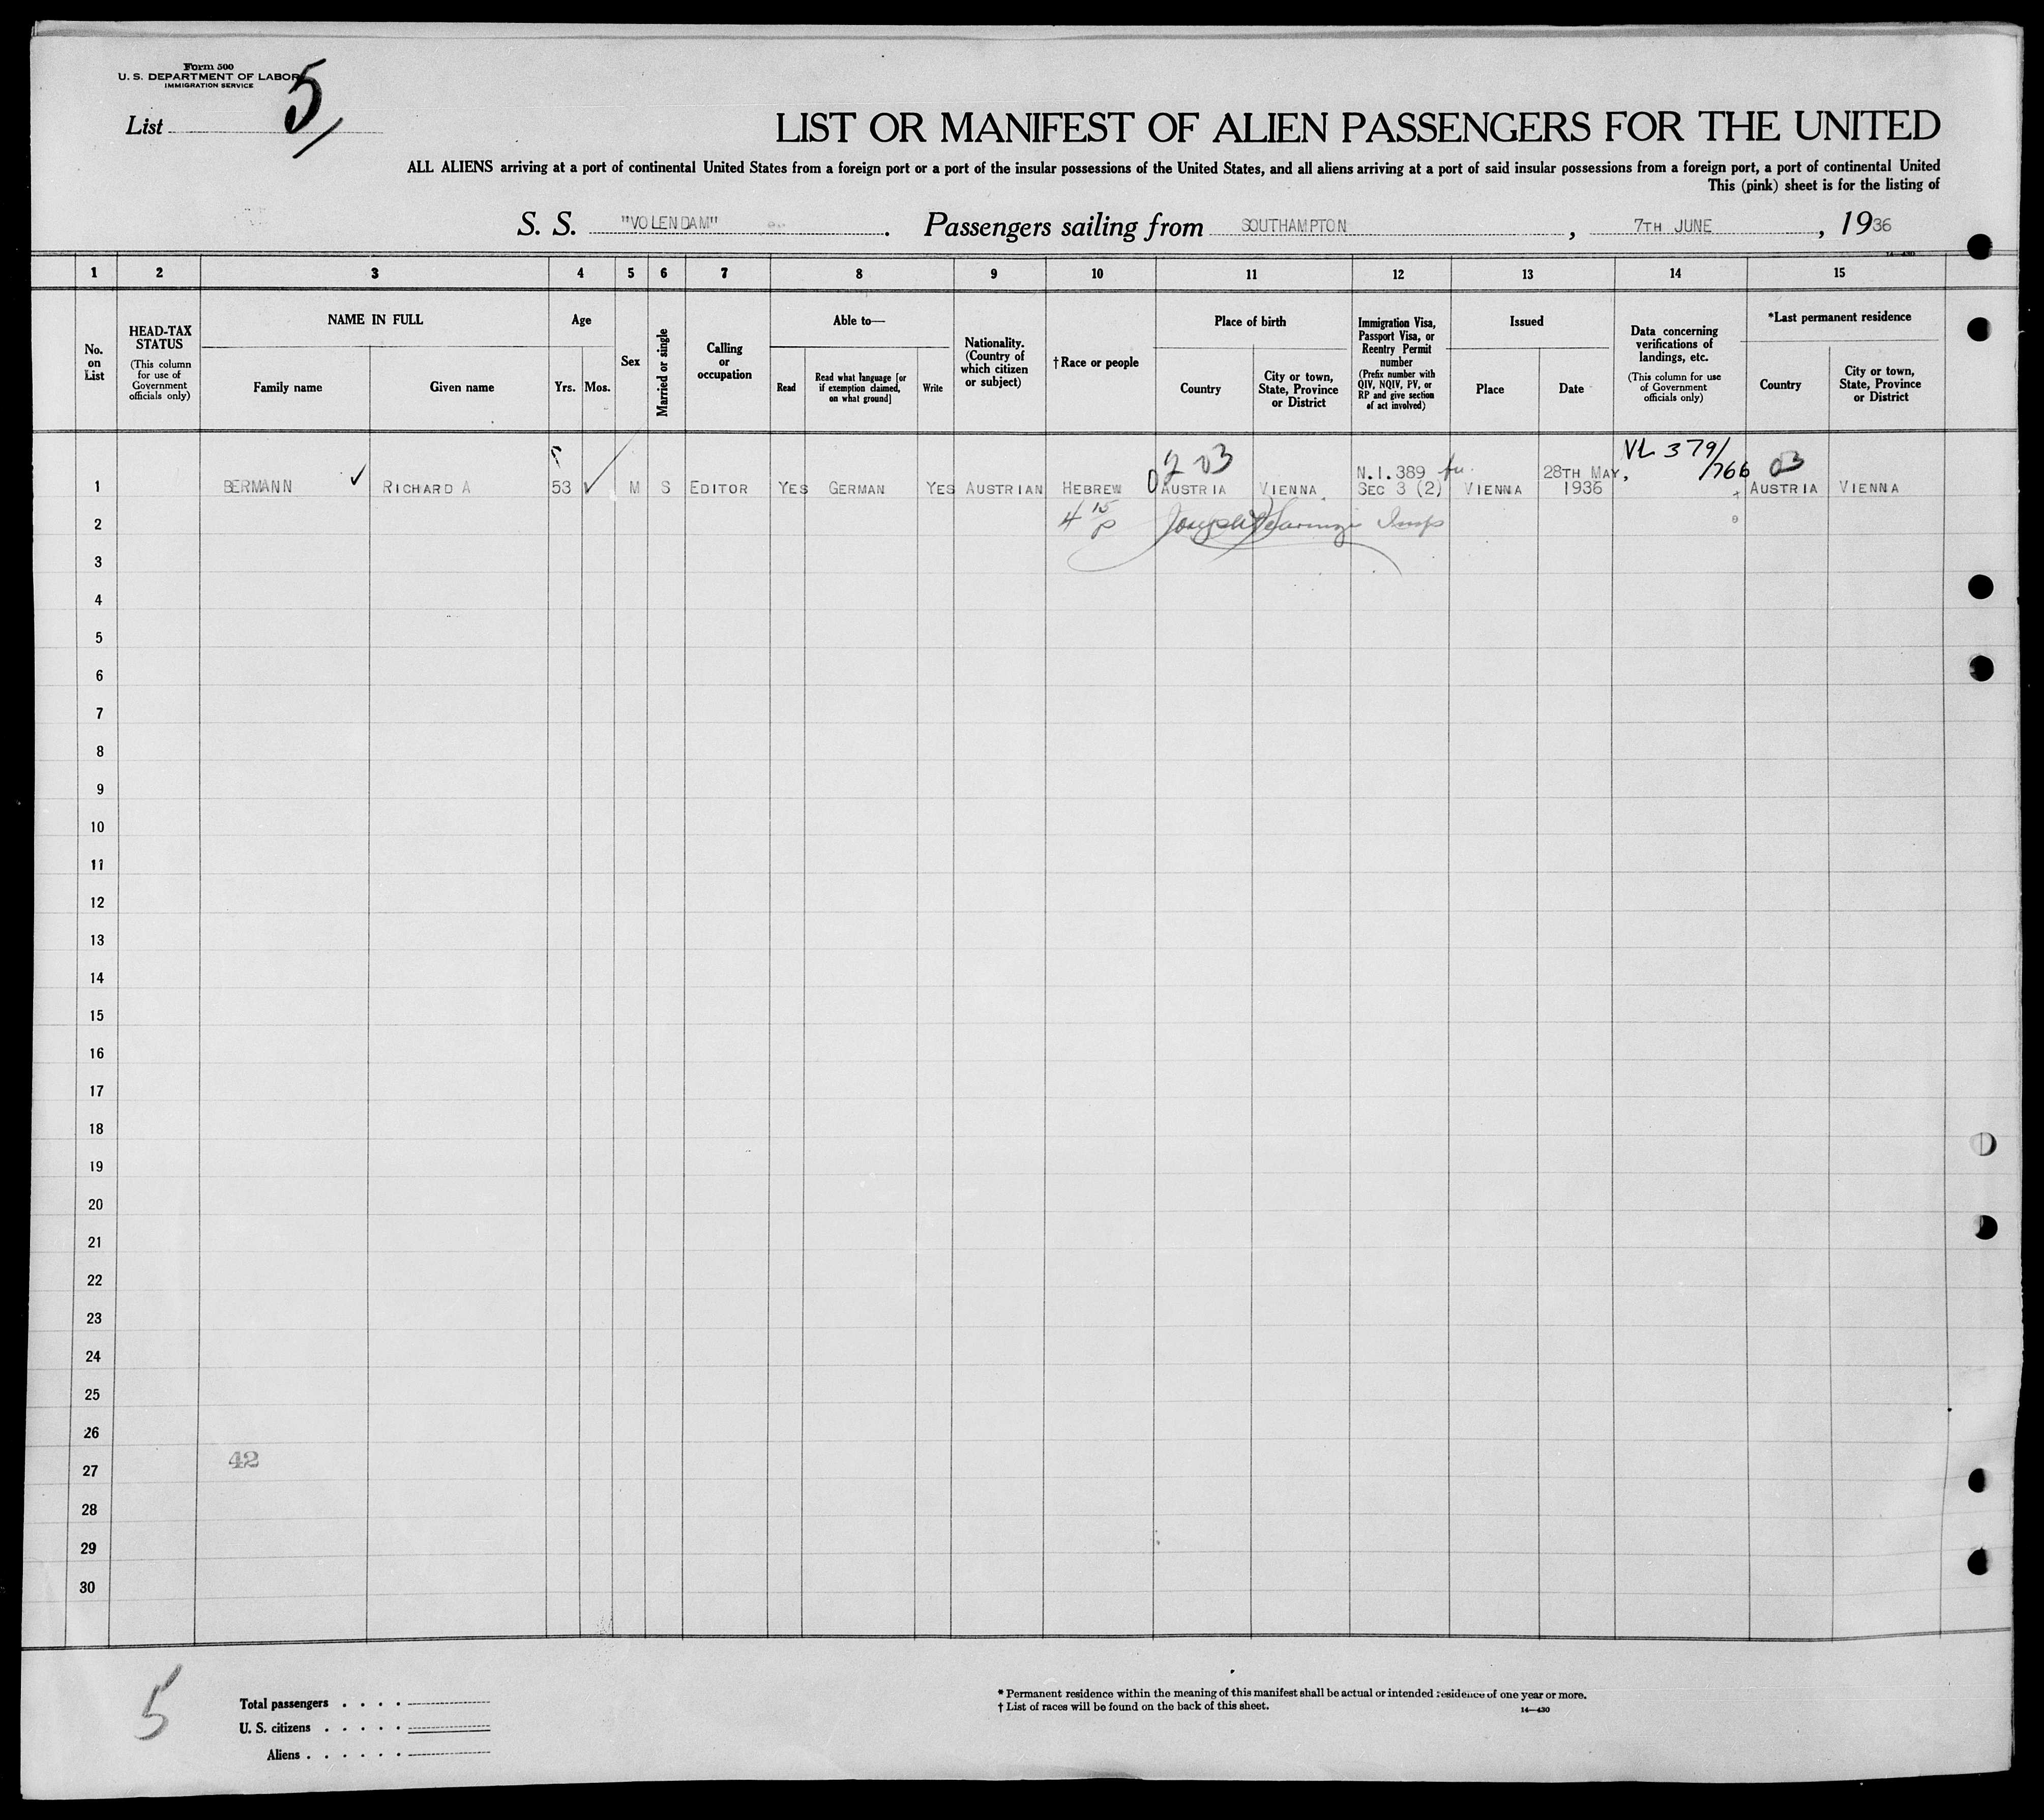 Form 500
U. S. DEPARTMENT OF LABOR
IMMIGRATION SERVICE
List 5
LIST OR MANIFEST OF ALIEN PASSENGERS FOR THE UNITED
ALL ALIENS arriving at a port of continental United States from a foreign port or a port of the insular possessions of the United States, and all aliens arriving at a port of said insular possessions from a foreign port, a port of continental United
This (pink) sheet is for the listing of
S. S. "VOLENDAM". Passengers sailing from SOUTHAMPTON, 7TH JUNE, 1936
14-430
1 2 3 4 5 6 7 8 9 10 11 12 13 14 15
No. on List
HEAD-TAX STATUS
(This column for use of Government officials only)
NAME IN FULL
Family name
Given name
Age
Yrs. Mos.
Sex
Married or single
Calling or occupation
Able to—
Read
Read what language [or if exemption claimed, on what ground]
Write
Nationality. (Country of which citizen or subject)
†Race or people
Place of birth
Country
City or town, State, Province or District
Immigration Visa, Passport Visa, or Reentry Permit number
(Prefix number with QIV, NQIV, PV, or RP and give section of act involved)
Issued
Place
Date
Data concerning verifications of landings, etc.
(This column for use of Government officials only)
*Last permanent residence
Country
City or town, State, Province or District
203 VL 379/766 03
N.I.389 28TH MAY,
1 BERMANN ✓ RICHARD A 53 ✓ M S EDITOR YES GERMAN YES AUSTRIAN HEBREW AUSTRIA VIENNA SEC 3 (2) VIENNA 1936 AUSTRIA VIENNA
2 4 15 p Joseph Insp
3
4
5
6
7
8
9
10
11
12
13
14
15
16
17
18
19
20
21
22
23
24
25
26
42
27
28
29
30
5
Total passengers . . . .
U. S. citizens . . . . .
Aliens . . . . . .
* Permanent residence within the meaning of this manifest shall be actual or intended residence of one year or more.
† List of races will be found on the back of this sheet.
14-430